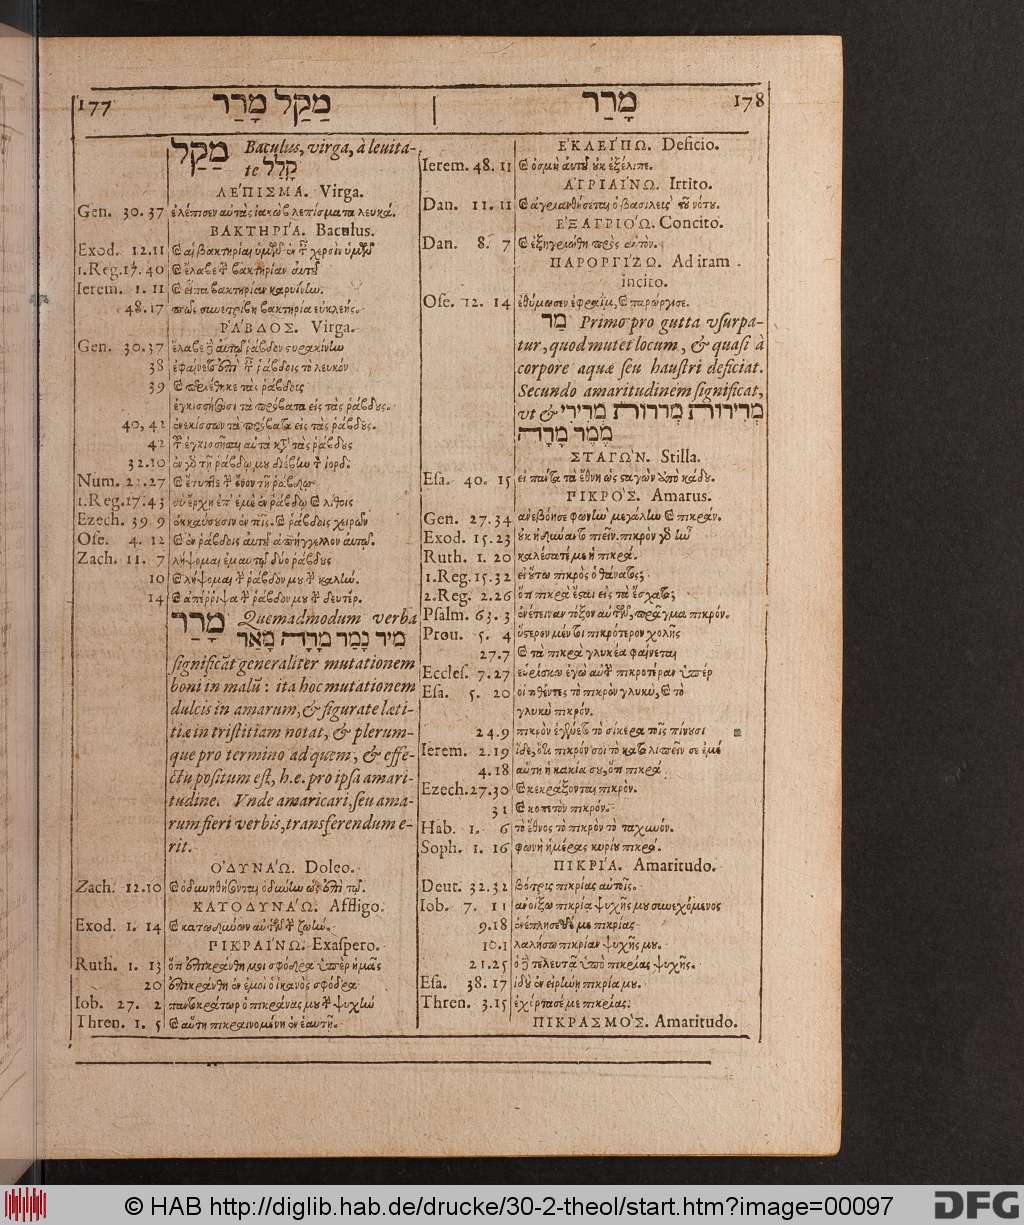 177 מַקַּל מָרַר
מַקַּל Baculus, virga, à leuita-
te קָלַל
ΛΕΠΙΣΜΑ. Virga.
Gen. 30.37 ἐλέπισεν αὐτὰς ἰακὼβ λεπίσματα λευκά.
ΒΑΚΤΗΡΙΑ. Baculus.
Exod. 12.11 καὶ αἱ βακτηρίαι ὑμῶν ἐν τ χερσὶν ὑμῶν
1.Reg.17.40 καὶ ἔλαβε τ βακτηρίαν αὐτοῦ
Ierem. 1.11 καὶ εἶπα βακτηρίαν καρυίνην.
48.17 πῶς συνετρίβη βακτηρία εὐκλεής.
ΡΑΒΔΟΣ. Virga.
Gen. 30.37 ἔλαβε δὲ αὑτῷ ῥάβδον στυρακίνην
38 ῥάβδοις τὸ λευκόν
39 τὰς ῥάβδους
ἐγκισσήσωσι τὰ πρόβατα εἰς τὰς ῥάβδους.
40,41 ἐνεκίσσων τὰ πρόβατα εἰς τὰς ῥάβδους.
42 αὐτὰ κτ τὰς ῥάβδους
32.10 ἐν γὸ τῇ ῥάβδῳ μου διέβην τ ἰορδ.
Num. 22.27 καὶ ἔτυπτε τ ὄνον τῇ ῥάβδῳ
1.Reg.17.43 σὺ ἔρχῃ ἐπ' ἐμὲ ἐν ῥάβδῳ καὶ λίθοις
Ezech. 39 9 καὶ ῥάβδοις χειρῶν
Ose. 4. 12 καὶ ἐν ῥάβδοις αὐτοῦ ἀπήγγελλον αὐτῷ.
Zach. 11. 7 λήψομαι ἐμαυτῷ δύο ῥάβδους
10 καὶ λήψομαι τ ῥάβδον μου τ καλήν.
14 καὶ ἀπέρριψα τ ῥάβδον μου τ δευτέρ.
מָרַר Quemadmodum verba
מיר נָמַר מָרָה מָאַר
significāt generaliter mutationem
boni in malū: ita hoc mutationem
dulcis in amarum, & figurate læti-
tiæ in tristitiam notat, & plerum-
que pro termino ad quem, & effe-
ctu positum est, h.e. pro ipsa amari-
tudine. Vnde amaricari, seu ama-
rum fieri verbis, transferendum e-
rit.
ΟΔΥΝΑΩ. Doleo.
Zach. 12.10 καὶ ὀδυνηθήσονται ὀδύνην
ΚΑΤΟΔΥΝΑΩ. Affligo.
Exod. 1. 14 καὶ κατωδύνων αὐτῶν τ ζωήν.
ΠΙΚΡΑΙΝΩ. Exaspero.
Ruth. 1. 13 ὅτι ἐπικράνθη μοι σφόδρα ὑπὲρ ἡμᾶς
20 ἐπικράνθη ἐν ἐμοὶ ὁ ἱκανὸς σφόδρα
Iob. 27. 2 παντοκράτωρ ὁ πικράνας μου τ ψυχήν
Thren. 1. 5 καὶ αὕτη πικραινομένη ἐν ἑαυτῇ.
מָרַר 178
ΕΚΛΕΙΠΩ. Deficio.
Ierem. 48. 11 καὶ ὀσμὴ αὐτοῦ οὐκ ἐξέλιπε.
ΑΓΡΙΑΙΝΩ. Irrito.
Dan. 11. 11 καὶ ἀγριανθήσεται ὁ βασιλεὺς τοῦ νότου.
ΕΞΑΓΡΙΟΩ. Concito.
Dan. 8. 7 καὶ ἐξηγριώθη πρὸς αὐτὸν.
ΠΑΡΟΡΓΙΖΩ. Ad iram
incito.
Ose. 12. 14 ἐθύμωσεν ἐφραὶμ, καὶ παρώργισε.
מַר Primo pro gutta vsurpa-
tur, quod mutet locum, & quasi à
corpore aquæ seu haustri deficiat.
Secundo amaritudinem significat,
vt & מְרִירוּת מְרֹרוֹת מְרִירִי
מֶמֶר מָרָה
ΣΤΑΓΩΝ. Stilla.
Esa. 40. 15 εἰ πάντα τὰ ἔθνη ὡς σταγὼν ἀπὸ κάδου.
ΠΙΚΡΟΣ. Amarus.
Gen. 27.34 ἀνεβόησε φωνὴν μεγάλην καὶ πικράν.
Exod. 15.23 οὐκ ἠδύναντο πιεῖν. πικρὸν γὸ ἦν
Ruth. 1. 20 καλέσατέ με ἡ πικρά.
1.Reg.15.32 εἰ οὕτω πικρὸς ὁ θάνατος;
2.Reg. 2.26 ὅτι πικρὰ ἔσται εἰς τὰ ἔσχατα;
Psalm. 63. 3 ἐνέτειναν τόξον αὐτῶν, πρᾶγμα πικρόν.
Prou. 5. 4 ὕστερον μέντοι πικρότερον χολῆς
27.7 καὶ τὰ πικρὰ γλυκέα φαίνεται
Eccles. 7.27 εὑρίσκω ἐγὼ αὐτ πικροτέραν ὑπὲρ
Esa. 5. 20 οἱ τιθέντες τὸ πικρὸν γλυκύ, καὶ τὸ
γλυκὺ πικρόν.
24.9 πικρὸν ἐγένετο τὸ σίκερα τοῖς πίνουσι
Ierem. 2.19 ἴδε, ὅτι πικρόν σοι τὸ καταλιπεῖν σε ἐμέ
4.18 αὕτη ἡ κακία σου, ὅτι πικρά
Ezech.27.30 καὶ κεκράξονται πικρόν.
31 καὶ κοπετὸν πικρόν.
Hab. 1. 6 τὸ ἔθνος τὸ πικρὸν τὸ ταχινόν.
Soph. 1. 16 φωνὴ ἡμέρας κυρίου πικρά.
ΠΙΚΡΙΑ. Amaritudo.
Deut. 32.32 βότρυς πικρίας αὐτοῖς.
Iob. 7. 11 ἀνοίξω πικρίᾳ ψυχῆς μου συνεχόμενος
9.18 ἐνέπλησε δέ με πικρίας
10.1 λαλήσω πικρίαν ψυχῆς μου.
21.25 ὁ δὲ τελευτᾷ ὑπὸ πικρίας ψυχῆς.
Esa. 38. 17 ἰδοὺ ἐν εἰρήνῃ πικρία μου.
Thren. 3.15 ἐχόρτασέ με πικρίας.
ΠΙΚΡΑΣΜΟΣ. Amaritudo.
© HAB http://diglib.hab.de/drucke/30-2-theol/start.htm?image=00097
DFG